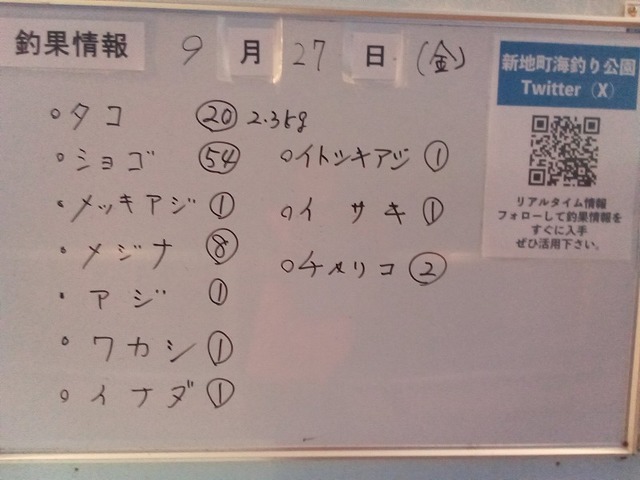 釣果情報 9月27日(金)
・タコ ⑳ 2.3kg
・ショゴ 54
・メッキアジ ①
・メジナ ⑧
・アジ ①
・ワカシ ①
・イナダ ①
○イトシキアジ ①
○イサキ ①
○チメリコ ②
新地町海釣り公園
Twitter(X)
リアルタイム情報
フォローして釣果情報を
すぐに入手
ぜひ活用下さい。